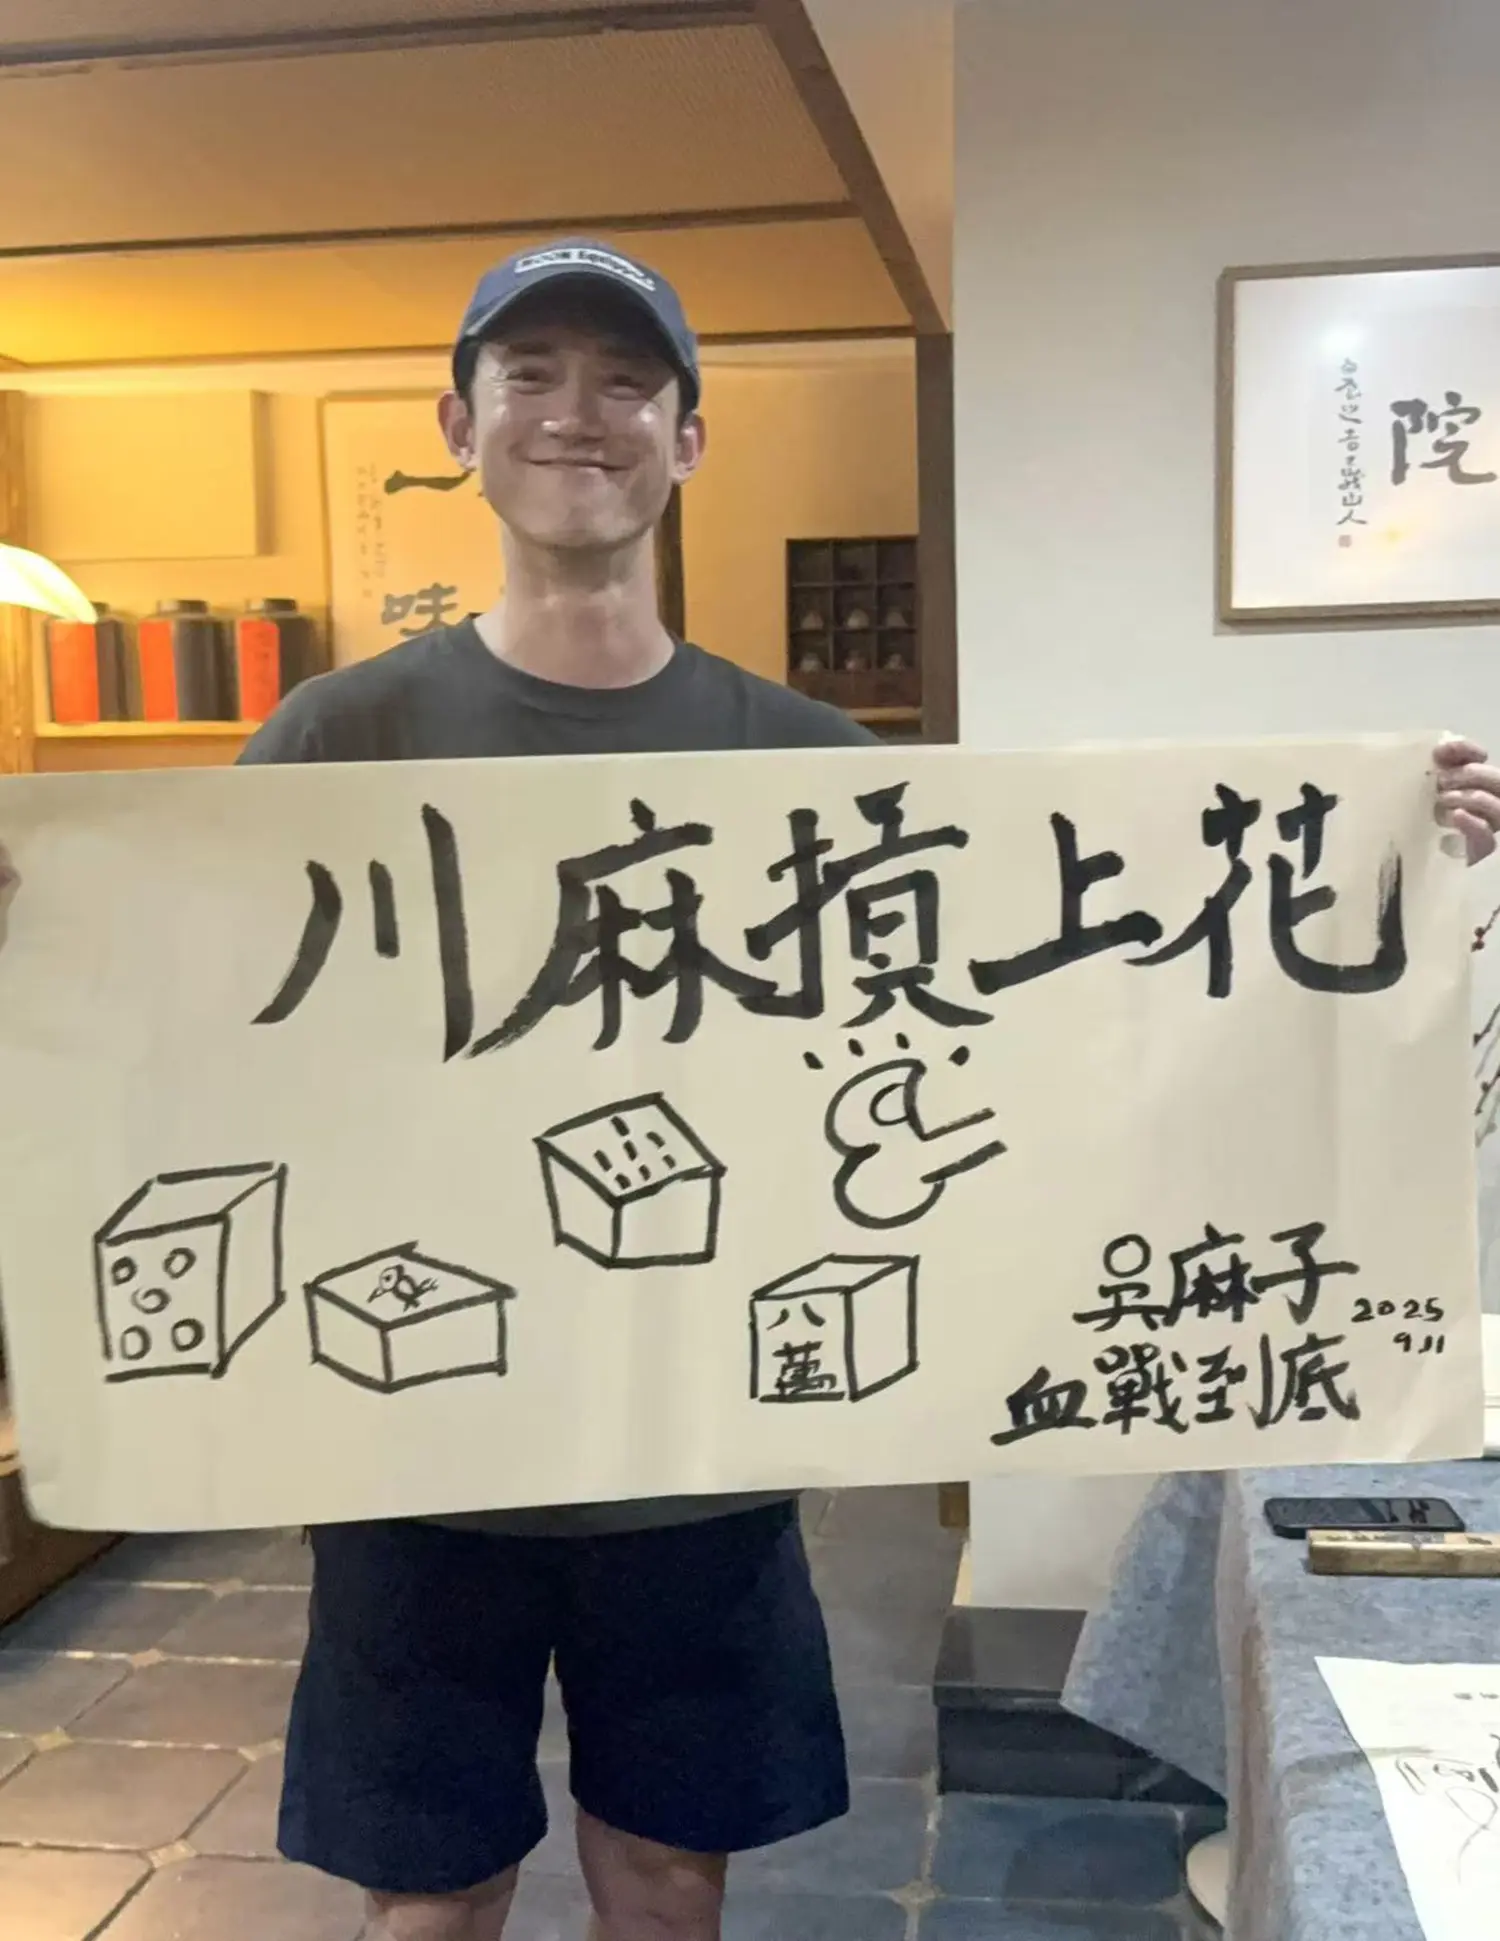 川麻摃上花
八萬
吳麻子
2025
9.11
血戰到底
院
一
味